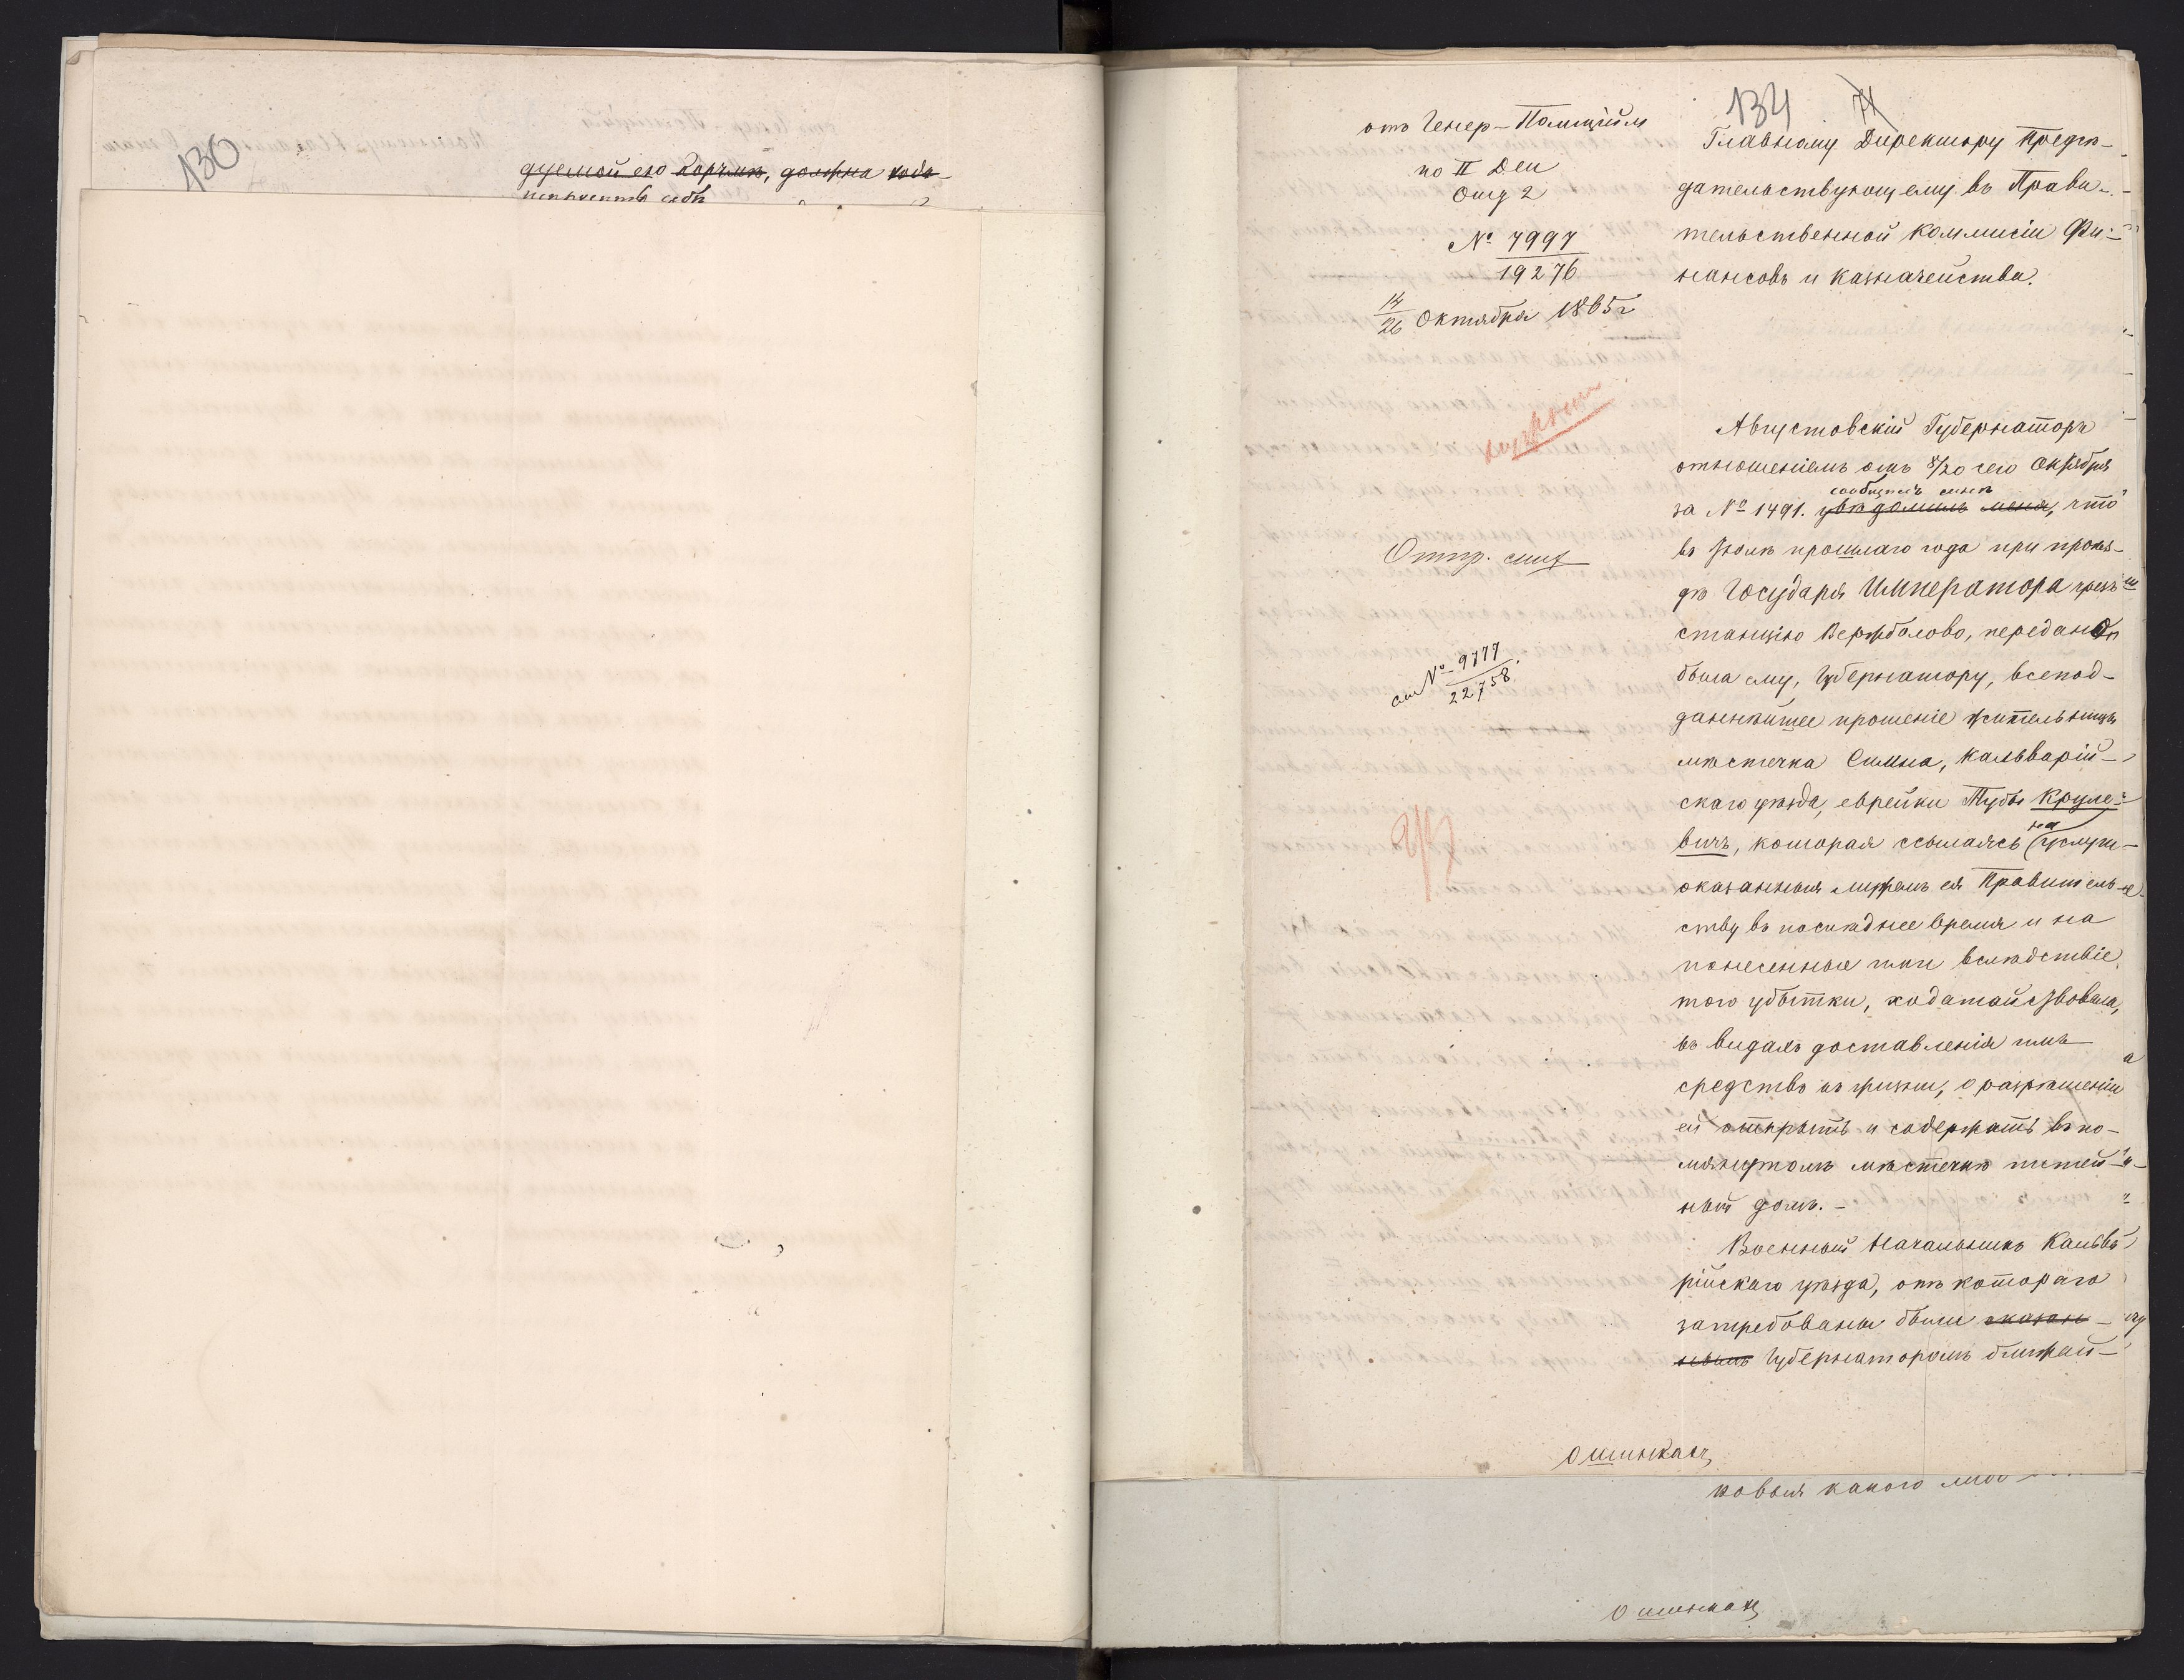 130
дуемой ею корчмѣ, должна хода-
отъ Генер-Полицiйм
по II Деп
Отд 2
№ 7997
19276
14/26 Октября 1865 г
Отпр. см
см № 9777
22758
134 71
Главному Директору Предсѣ-
дательствующему въ Прави-
тельственной Коммисіи Фи-
нансовъ и Казначейства.
Августовскій Губернаторъ
отношеніемъ отъ 8/20 сего Октября
сообщилъ мнѣ
за № 1491. увѣдомилъ меня, что
въ Іюнѣ прошлаго года при проѣз-
дѣ Государя Императора чрезъ
станцію Вержболово, передано
была ему, Губернатору, всепод-
даннѣйшее прошеніе жительницы
мѣстечка Симна, Кальварій-
скаго уѣзда, еврейки Тубы Круле-
вичъ, которая ссылаясь на услуги
оказанныя мужемъ ея Правитель-
ству въ послѣднее время и на
понесенные ими вслѣдствіе
того убытки, ходатайствовала,
въ видахъ доставленія имъ
средствъ къ жизни, о разрѣшеніи
ей открыть и содержать въ по-
мянутомъ мѣстечкѣ питей-
ный домъ. -
Военный Начальникъ Кальва
рійскаго уѣзда, отъ котораго
затребованы были сказан-
нымъ Губернаторомъ ближай-
О шинкахъ
новыя какого либо
О шинкахъ